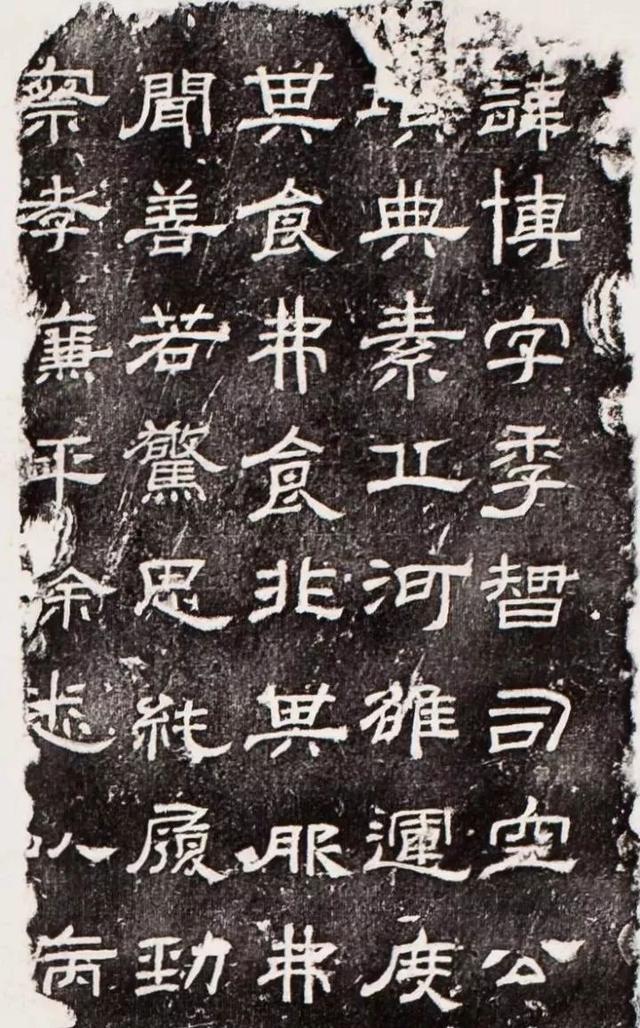 諱博字季智司空公
墳典素丘河雒運度
其食弗食非其服弗
聞善若驚思純履勁
察孝廉平除以病